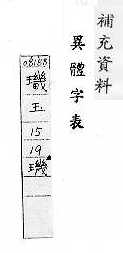 補充資料
異體字表
08188
璣
玉
15
19
璣